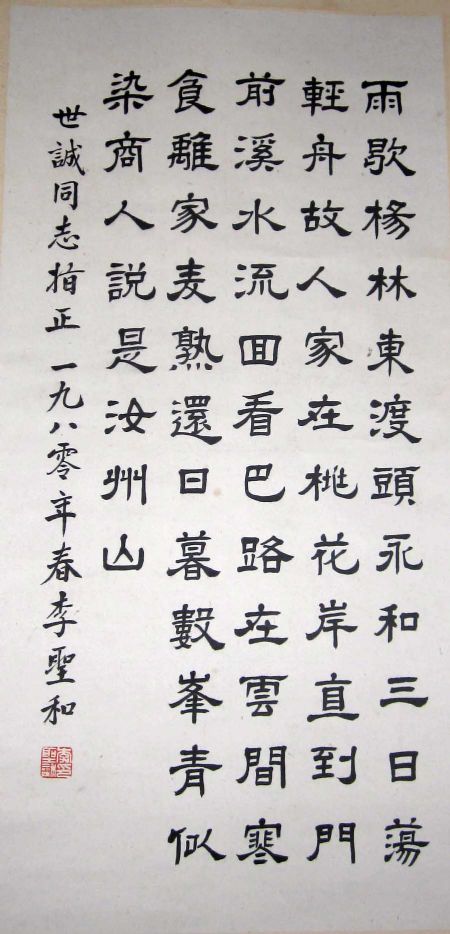 雨歇楊林東渡頭永和三日蕩
輕舟故人家在桃花岸直到門
前溪水流囬看巴路在雲間寒
食離家麦熟還日暮數峯青似
染商人說是汝州山
世誠同志指正一九八零年春李聖和